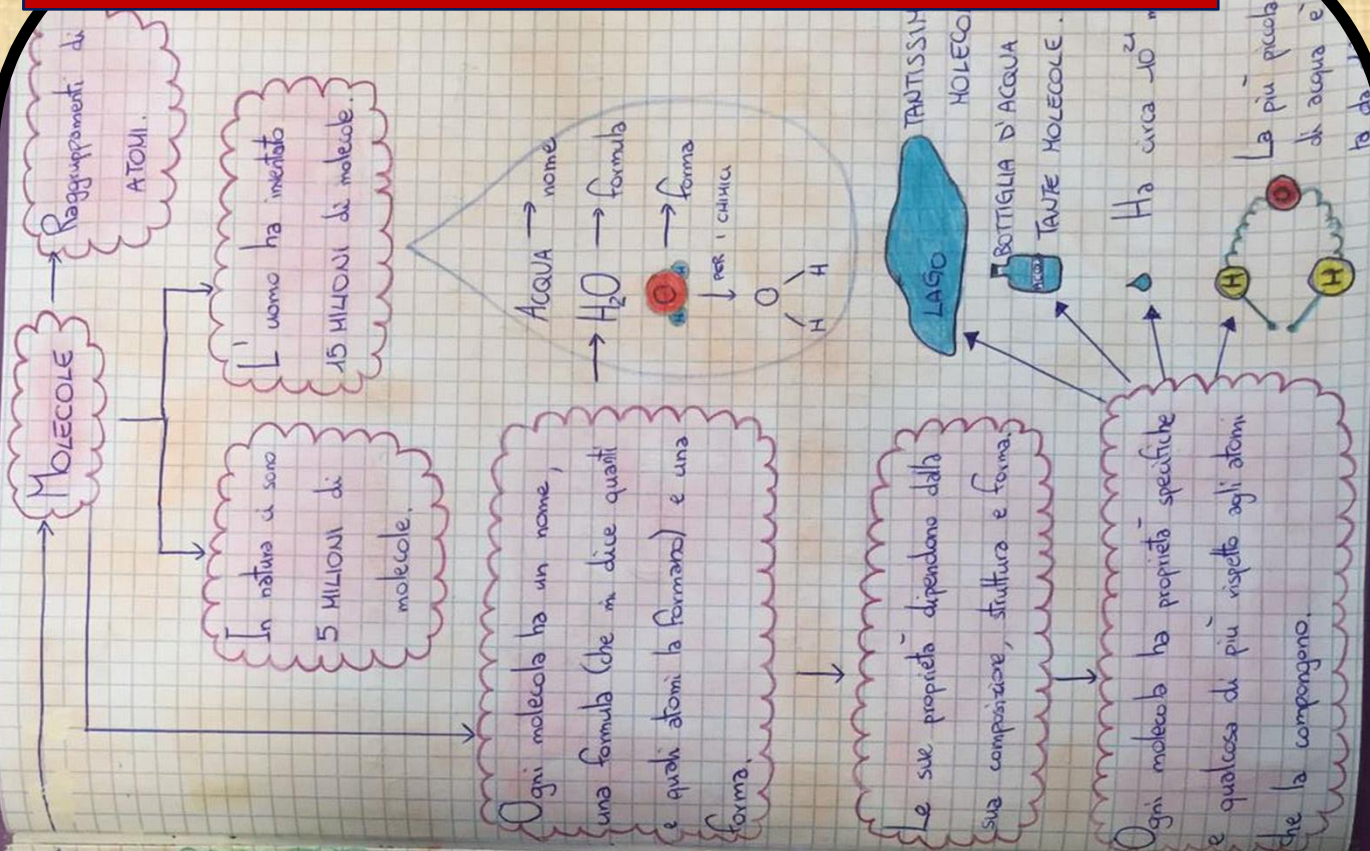 MOLECOLE
Raggruppamenti di
ATOMI.
In natura ci sono
5 MILIONI di
molecole.
L'uomo ha inventato
15 MILIONI di molecole.
Ogni molecola ha un nome,
una formula (che mi dice quanti
e quali atomi la formano) e una
forma.
ACQUA → nome
→ H₂O → formula
H O H → forma
↓ PER I CHIMICI
O
H H
Le sue proprietà dipendono dalla
sua composizione, struttura e forma.
Ogni molecola ha proprietà specifiche
e qualcosa di più rispetto agli atomi
che la compongono.
LAGO
MOLECOL
BOTTIGLIA D'ACQUA
TANTE MOLECOLE.
ACQUA
Ha circa 10²¹ m
H O H
La più piccola
di acqua è
ta da